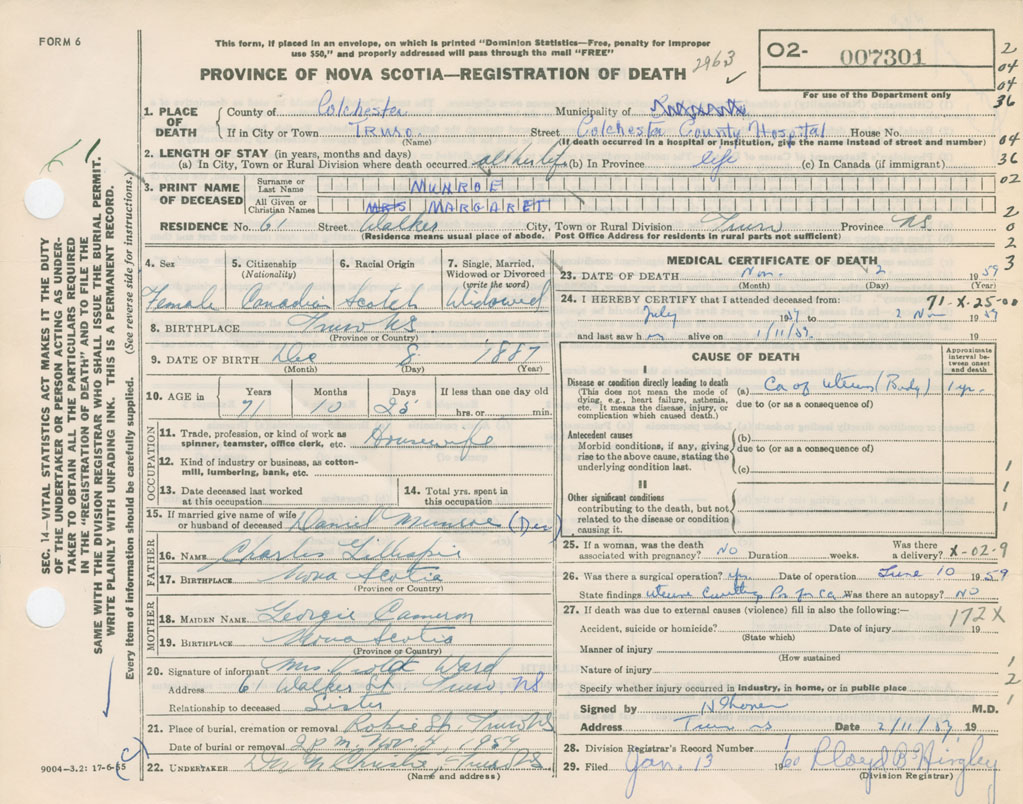 FORM 6
This form, if placed in an envelope, on which is printed "Dominion Statistics—Free, penalty for improper
use $50," and properly addressed will pass through the mail "FREE"
PROVINCE OF NOVA SCOTIA—REGISTRATION OF DEATH 2963
02- 007301
For use of the Department only
2
04
04
36
04
36
02
2
0
2
3
1. PLACE OF DEATH County of Colchester Municipality of
If in City or Town Truro. (Name) Street Colchester County Hospital House No.
(If death occurred in a hospital or institution, give the name instead of street and number)
2. LENGTH OF STAY (in years, months and days)
(a) In City, Town or Rural Division where death occurred all her life (b) In Province life (c) In Canada (if immigrant)
3. PRINT NAME OF DECEASED Surname or Last Name MUNROE
All Given or Christian Names MRS MARGARET
RESIDENCE No. 61 Street Walker City, Town or Rural Division Truro Province NS
(Residence means usual place of abode. Post Office Address for residents in rural parts not sufficient)
4. Sex Female
5. Citizenship (Nationality) Canadian
6. Racial Origin Scotch
7. Single, Married, Widowed or Divorced (write the word) Widowed
8. BIRTHPLACE Truro NS
(Province or Country)
9. DATE OF BIRTH Dec 8 1887
(Month) (Day) (Year)
10. AGE in Years 71 Months 10 Days 25 If less than one day old hrs. or min.
OCCUPATION
11. Trade, profession, or kind of work as spinner, teamster, office clerk, etc. Housewife
12. Kind of industry or business, as cotton-mill, lumbering, bank, etc.
13. Date deceased last worked at this occupation
14. Total yrs. spent in this occupation
15. If married give name of wife or husband of deceased Daniel Munroe (Dec)
FATHER
16. NAME Charles Gillespie
17. BIRTHPLACE Nova Scotia
(Province or Country)
MOTHER
18. MAIDEN NAME Georgie Cameron
19. BIRTHPLACE Nova Scotia
(Province or Country)
20. Signature of informant Mrs Violet Ward
Address 61 Walker St. Truro NS
Relationship to deceased Sister
21. Place of burial, cremation or removal Robie St. Truro NS
Date of burial or removal 2 P.M. Nov 1959
22. UNDERTAKER Christie, Truro NS
(Name and address)
MEDICAL CERTIFICATE OF DEATH
23. DATE OF DEATH Nov. 2 1959
(Month) (Day) (Year)
24. I HEREBY CERTIFY that I attended deceased from: 71-X-25-00
July 1959 to 2 Nov 1959
and last saw h er alive on 1/11/59 19
CAUSE OF DEATH
Approximate interval between onset and death
I
Disease or condition directly leading to death
(This does not mean the mode of dying, e.g., heart failure, asthenia, etc. It means the disease, injury, or complication which caused death.)
(a) Ca of uterus (Body) 1 yr.
due to (or as a consequence of)
Antecedent causes
Morbid conditions, if any, giving rise to the above cause, stating the underlying condition last.
(b)
due to (or as a consequence of)
(c)
II
Other significant conditions
contributing to the death, but not related to the disease or condition causing it.
1
1
1
25. If a woman, was the death associated with pregnancy? NO Duration weeks. Was there a delivery? X-02-9
26. Was there a surgical operation? yes Date of operation June 10 1959
State findings uterine for Ca Was there an autopsy? NO
27. If death was due to external causes (violence) fill in also the following:— 172X
Accident, suicide or homicide? Date of injury 19
(State which)
Manner of injury
(How sustained
Nature of injury
Specify whether injury occurred in industry, in home, or in public place
1
2
1
Signed by M.D.
Address Truro NS Date 2/11/59 19
28. Division Registrar's Record Number
29. Filed Jan. 13 1960 Lloyd B Hingley
(Division Registrar)
SEC. 14—VITAL STATISTICS ACT MAKES IT THE DUTY
OF THE UNDERTAKER OR PERSON ACTING AS UNDER-
TAKER TO OBTAIN ALL THE PARTICULARS REQUIRED
IN THE "REGISTRATION OF DEATH" AND TO FILE THE
SAME WITH THE DIVISION REGISTRAR WHO SHALL ISSUE THE BURIAL PERMIT.
WRITE PLAINLY WITH UNFADING INK. THIS IS A PERMANENT RECORD.
Every item of information should be carefully supplied. (See reverse side for instructions.)
9004-3.2: 17-6-55